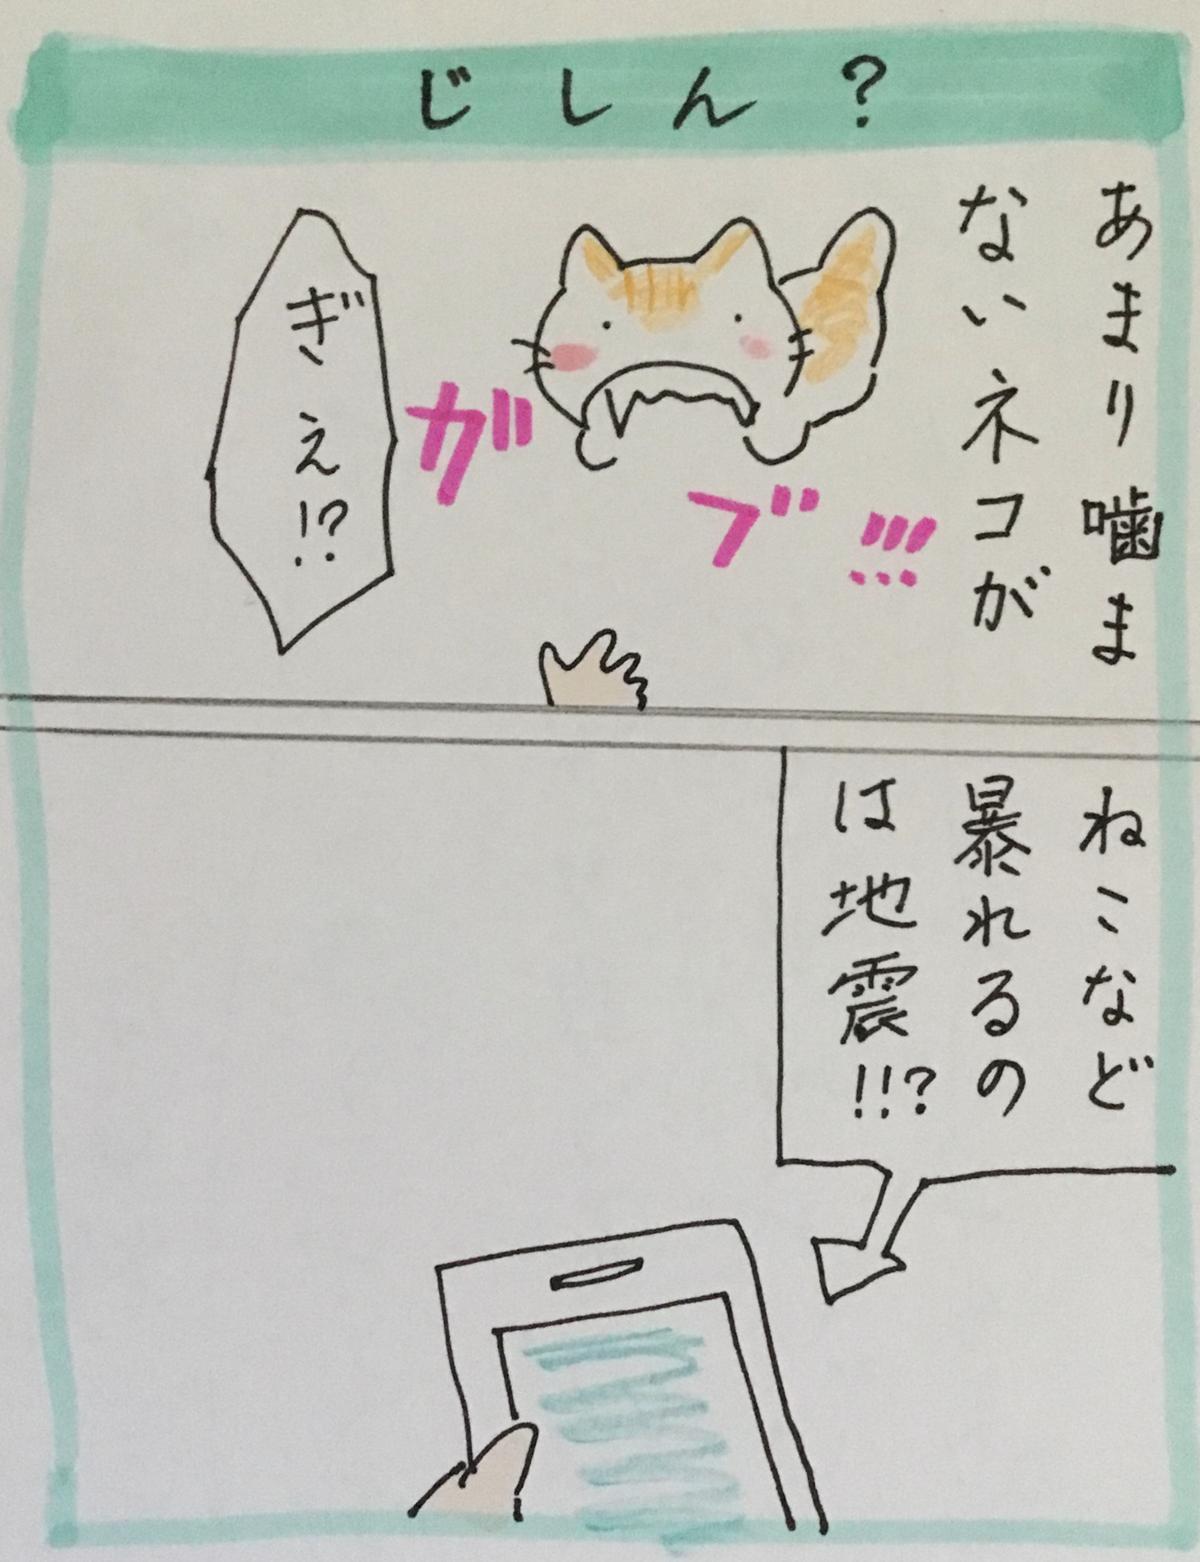 じしん?
あまり噛ま
ないネコが
ガブ!!!
ぎぇ!?
ねこなど
暴れるの
は地震!!?